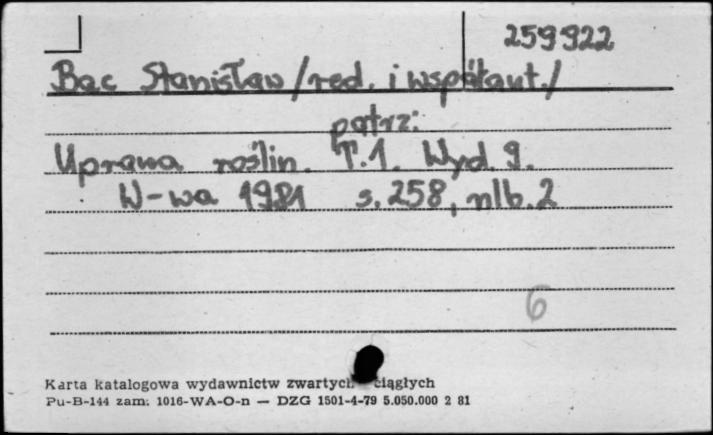 259922
Bac Stanisław /red. i współaut./
patrz:
Uprawa roślin. T.1. Wyd. 9.
W-wa 1981 s. 258, nlb. 2
6
Karta katalogowa wydawnictw zwartych ciągłych
Pu-B-144 zam. 1016-WA-O-n — DZG 1501-4-79 5.050.000 2 81